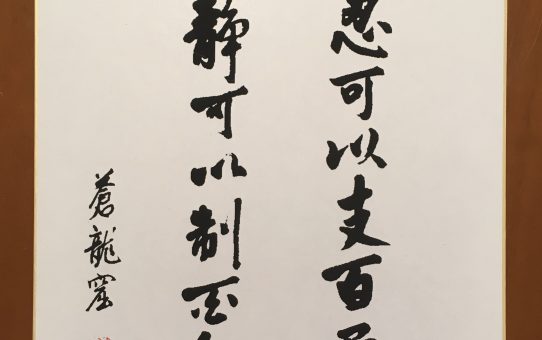 忍可以支百
静可以制百
蒼龍窟